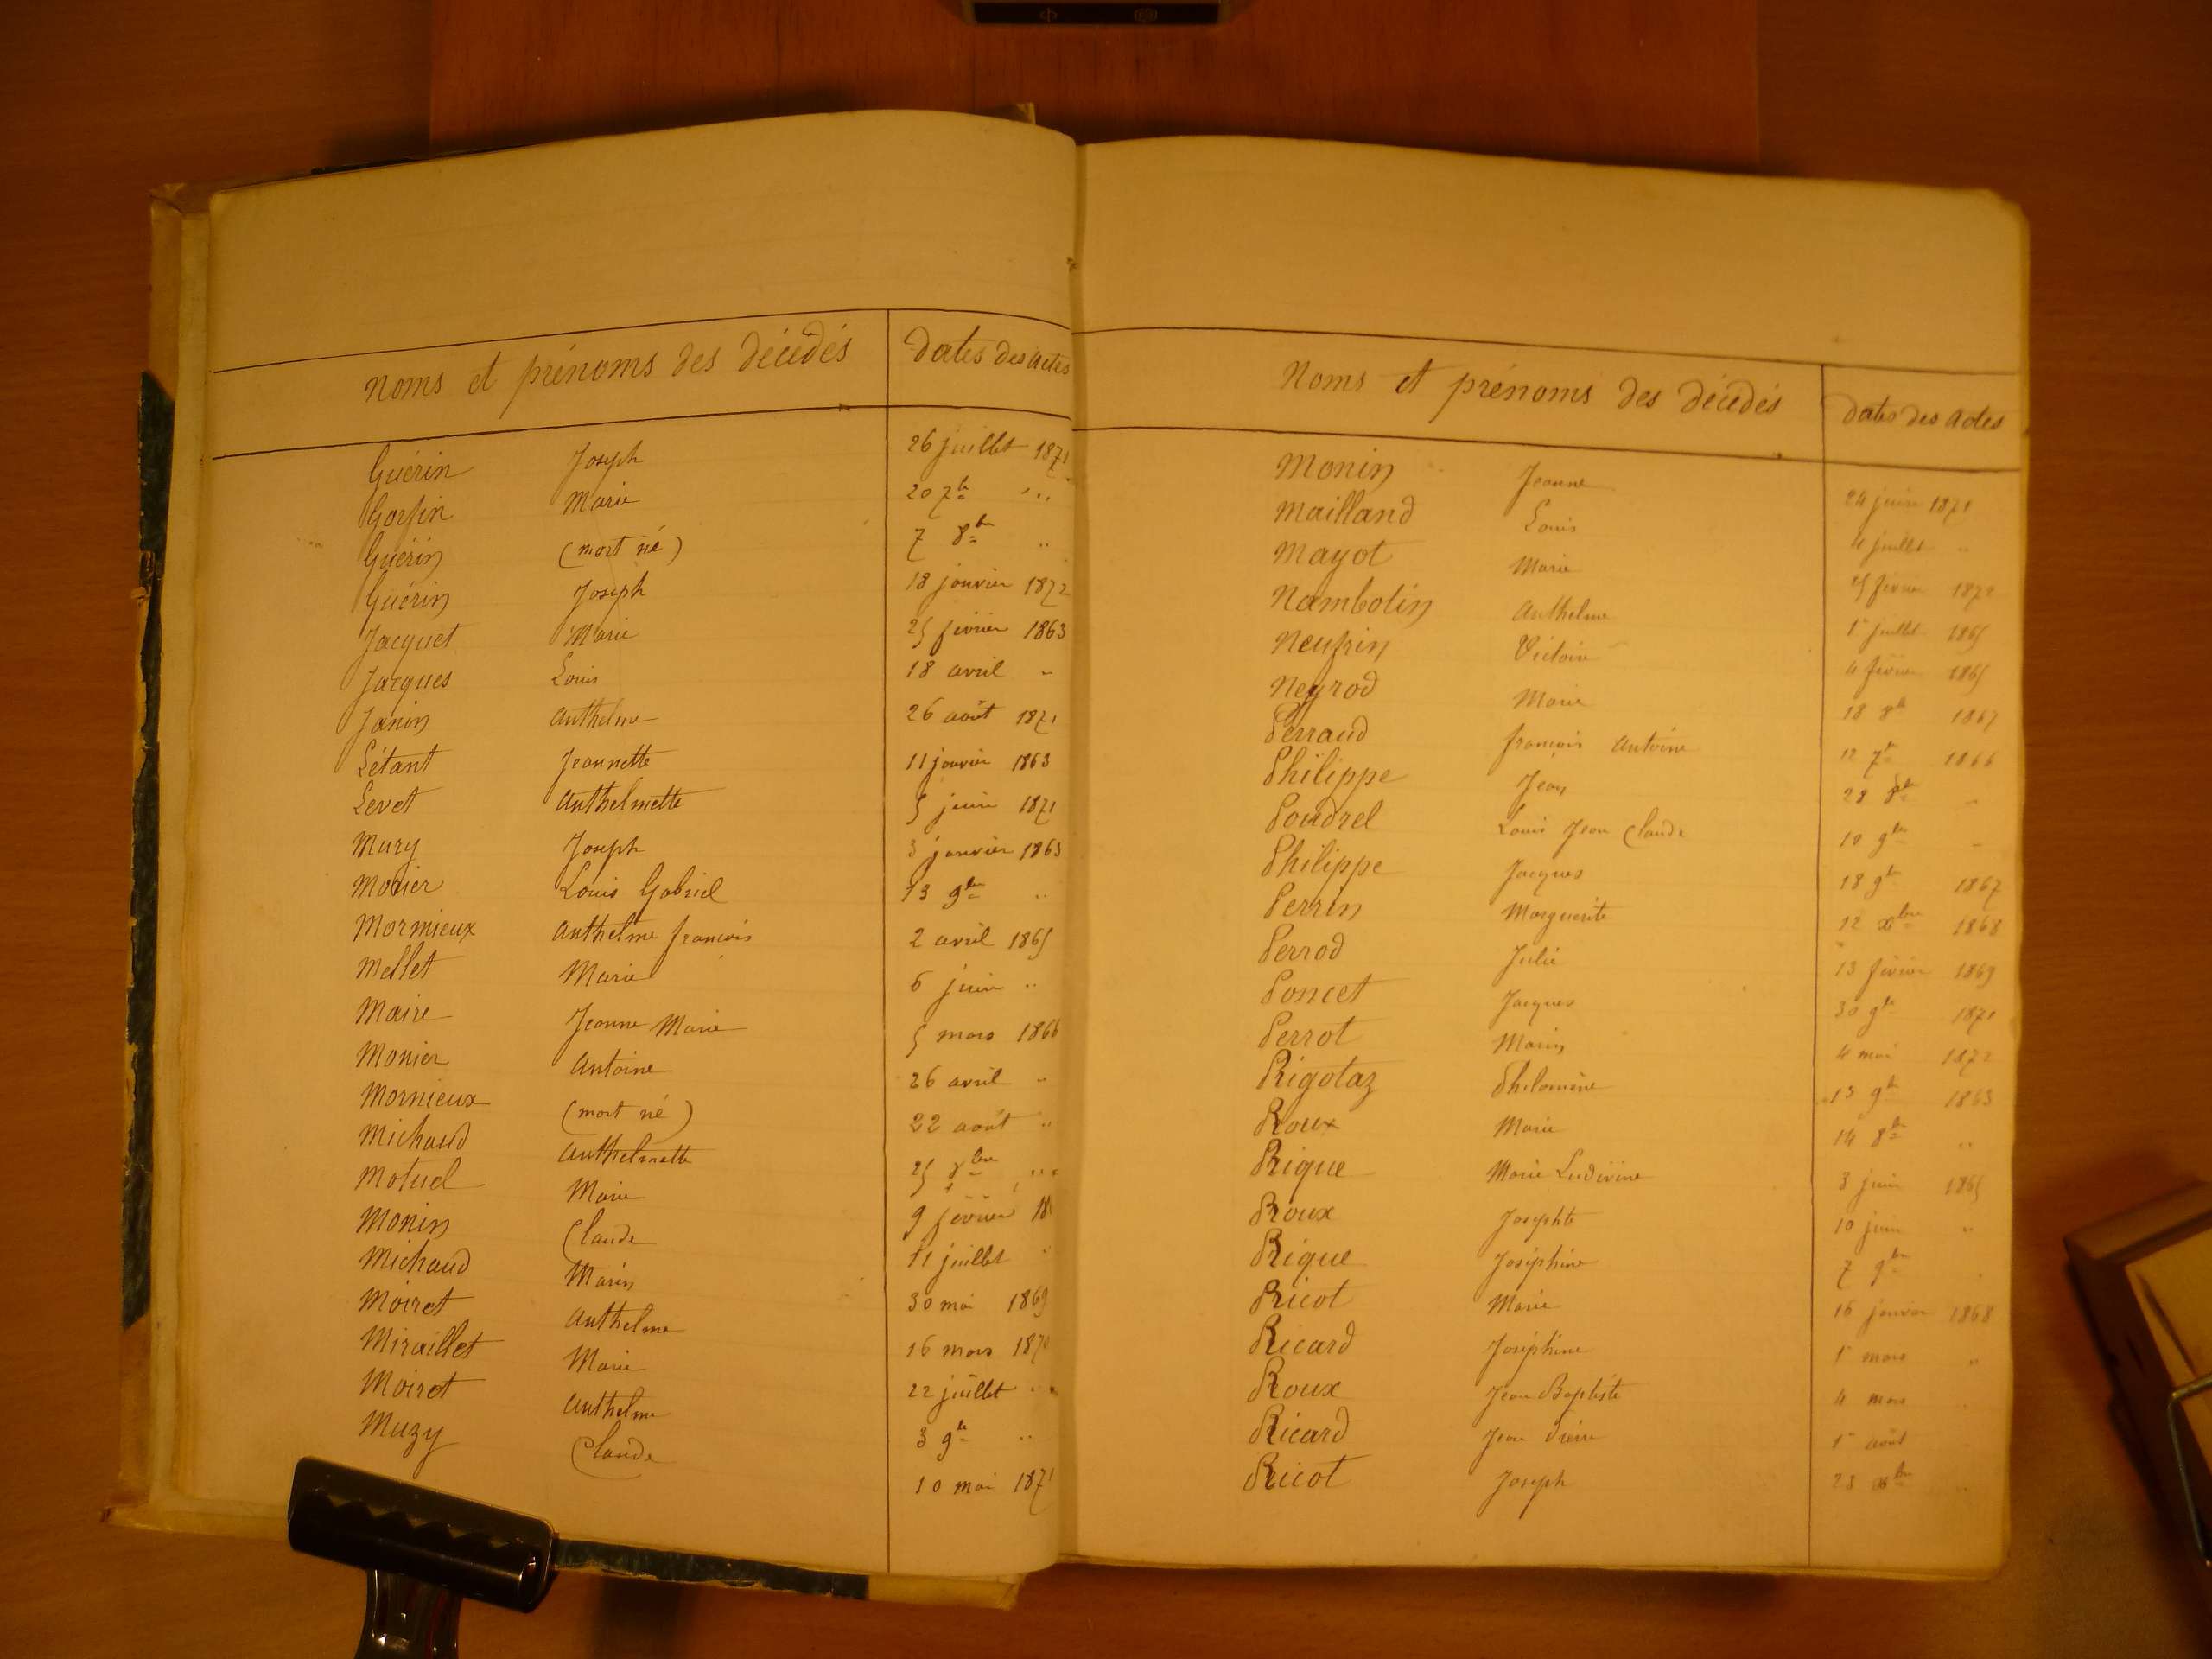 Noms et prénoms des décédés Dates des actes
Guérin Joseph 26 juillet 1871
Gorfin Marie 20 7bre ...
Guérin (mort né) 7 8bre ..
Guérin Joseph 18 janvier 1872
Jacquet Marie 25 février 1863
Jacques Louis 18 avril -
Janin Anthelme 26 août 1871
Létant Jeannette 11 janvier 1863
Levet Anthelmette 5 juin 1871
Mury Joseph 3 janvier 1863
Louis Gabriel 13 9bre ..
Mormieux Anthelme françois 2 avril 1865
Mellet Marie 6 juin ..
Maire Jeanne Marie 5 mars 1866
Monier Antoine 26 avril ..
Mornieux (mort né) 22 août ..
Michaud Anthelmette 25 8bre ...
Motuel Marie 9 février
Monin Claude 11 juillet
Michaud Marin 30 mai 1869
Moiret Anthelme 16 mars 1870
Miraillet Marie 22 juillet ..
Moiret Anthelme 3 9bre ..
Muzy Claude 10 mai 1871
Noms et prénoms des décédés Dates des actes
Monin Jeanne 24 juin 1871
Mailland Louis 4 juillet ..
Mayot Marie 25 février 1872
Nambotin Anthelme 1er juillet 1865
Neufrin Victoire 4 février 1865
Neyrod Marie 18 8bre 1867
Perraud françois Antoine 12 7bre 1866
Philippe Jean 28 8bre -
Poudrel Louis Jean Claude 10 9bre -
Philippe Jacques 18 9bre 1867
Perrin Marguerite 12 xbre 1868
Perrod Julie 13 février 1869
Poncet Jacques 30 9bre 1871
Perrot Marin 4 mai 1872
Rigotaz Philomène 13 9bre 1863
Roux Marie 14 8bre ..
Rique Marie Ludivine 3 juin 1865
Roux Josephte 10 juin ..
Rique Joséphine 7 9bre
Ricot Marie 16 janvier 1868
Ricard Joséphine 1er mars ..
Roux Jean Baptiste 4 mars
Ricard Jean Pierre 1er août
Ricot Joseph 28 xbre ..